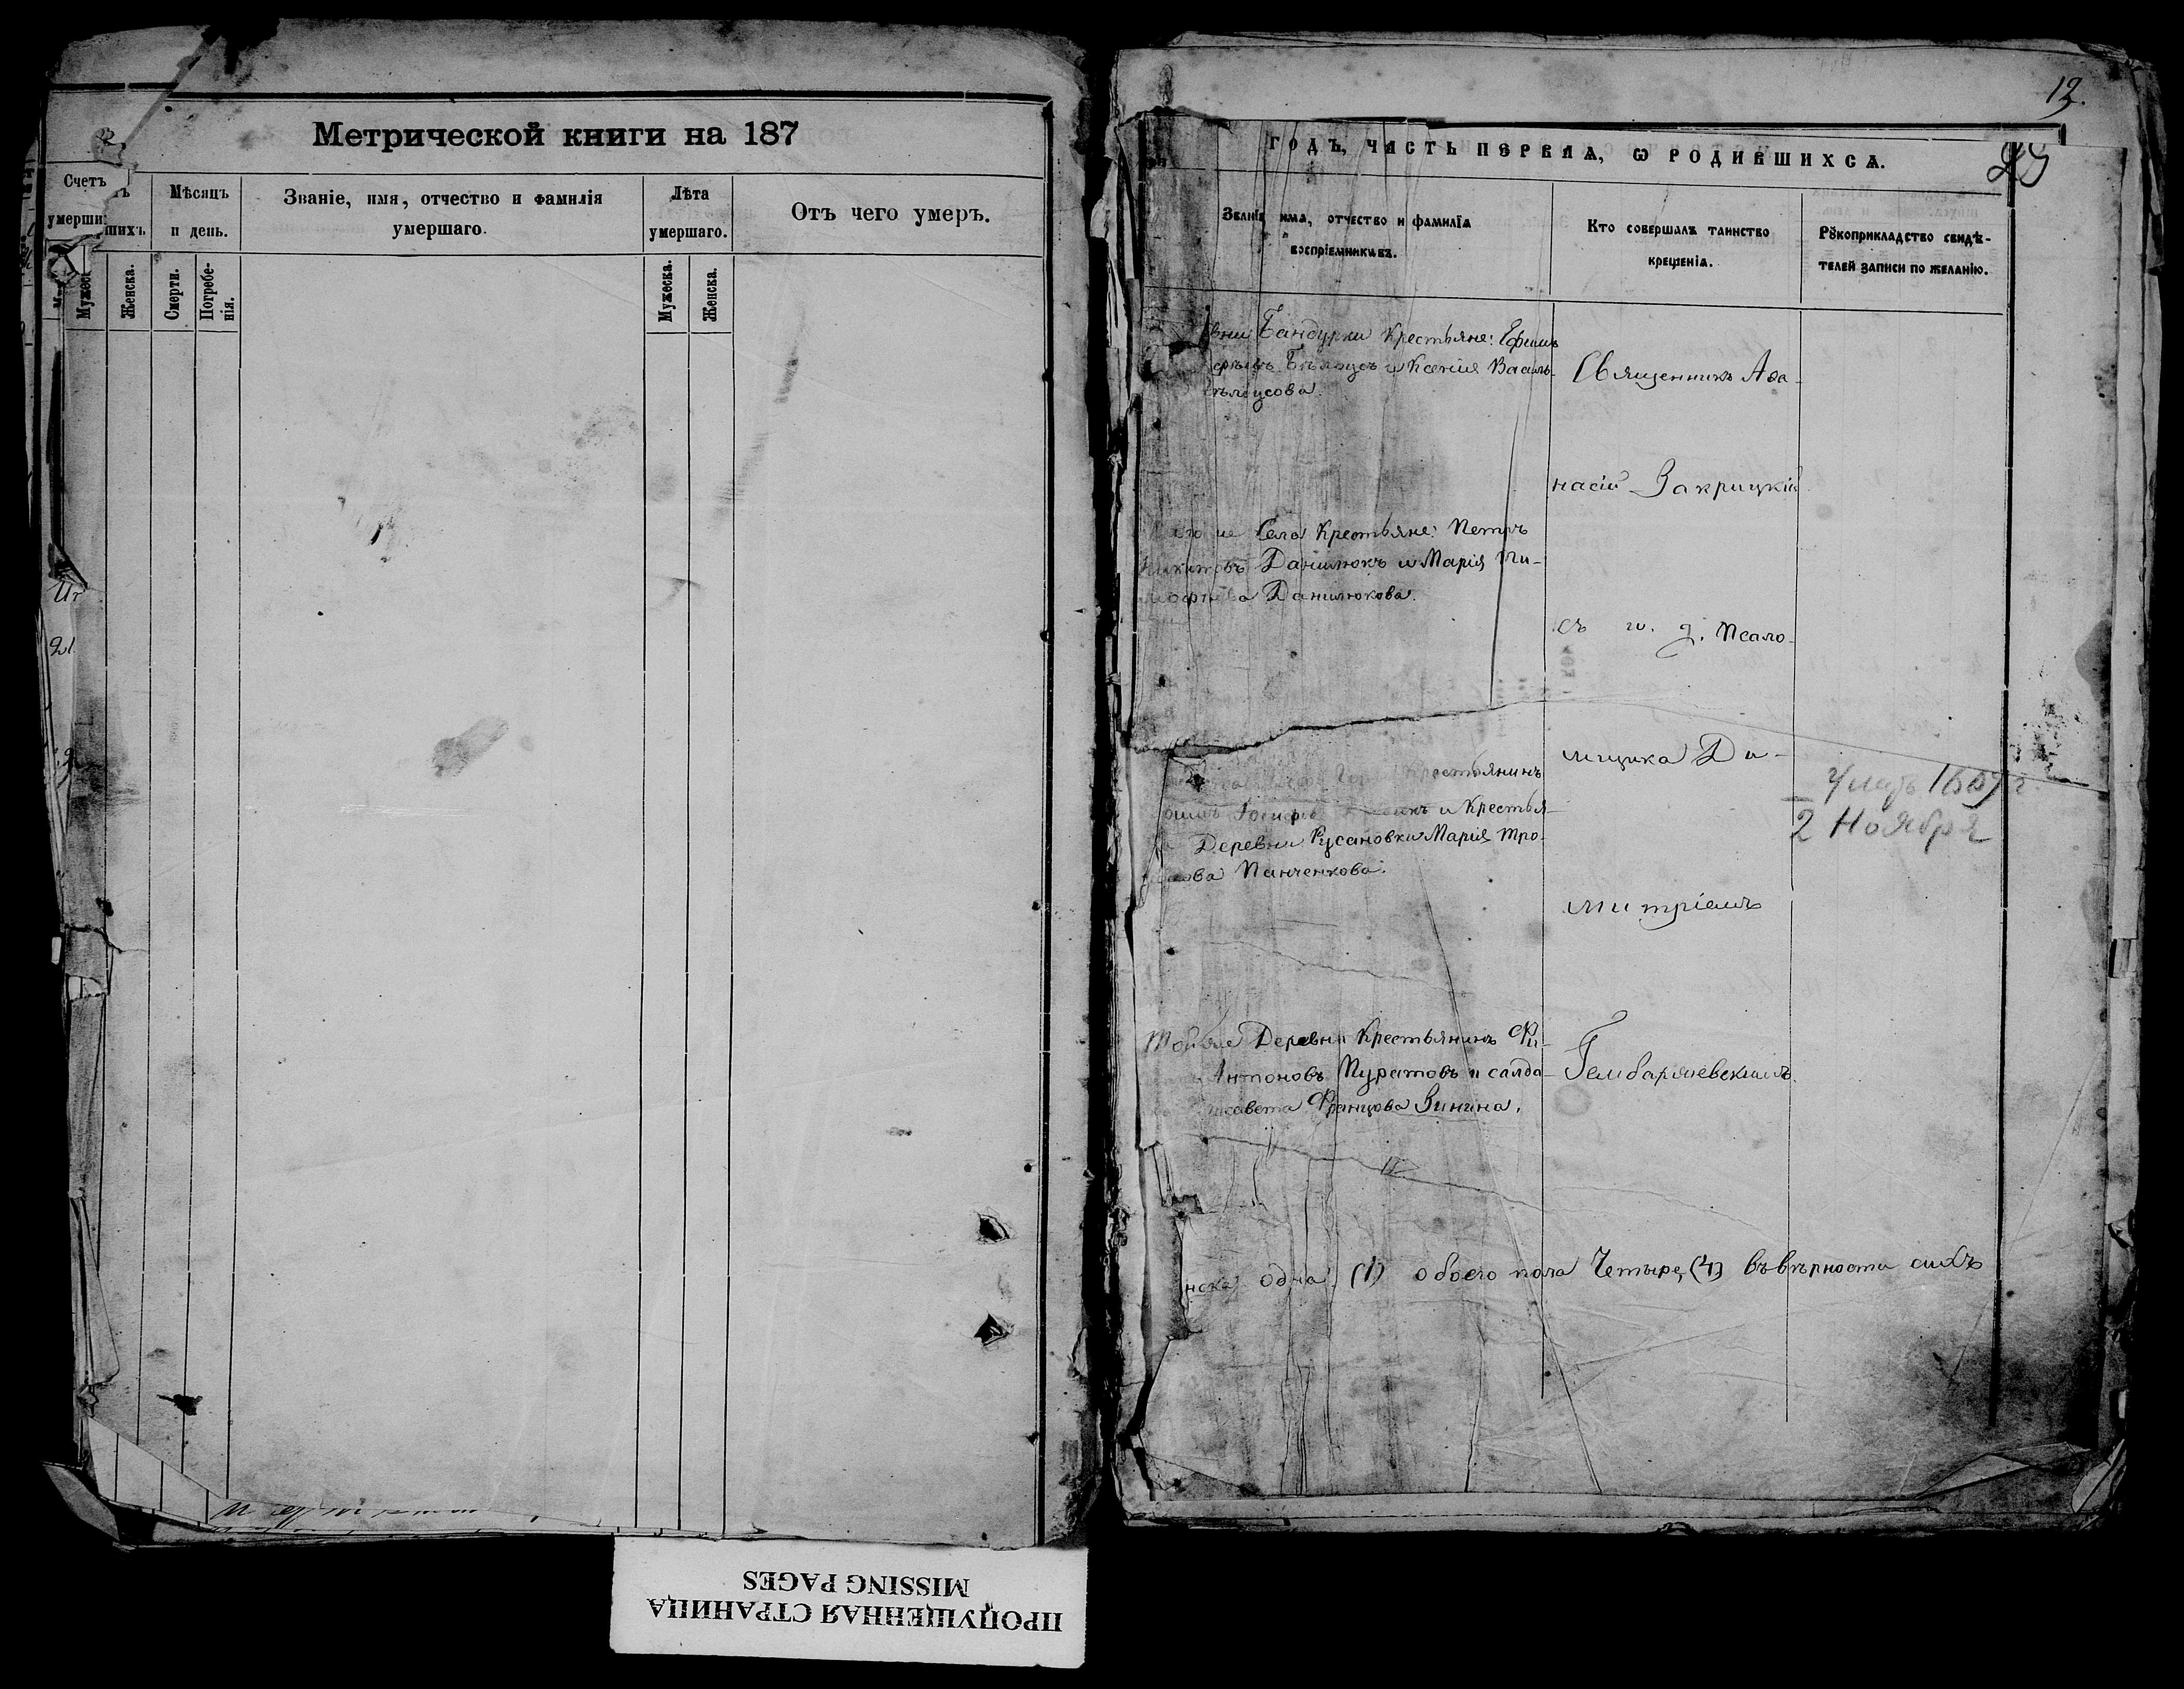 Метрической книги на 187
Счетъ
умерши
шихъ.
Мѣсяцъ
и день.
Званіе, имя, отчество и фамилія
умершаго.
Лѣта
умершаго.
Отъ чего умеръ.
Мужес
Женска.
Смерти.
Погребе-
нія.
Мужеска.
Женска.
21
13.
ГОДЪ, ЧАСТЬ ПЕРВАЯ, Ѡ РОДИВШИХСѦ.
Званіе имѧ, отчество и фамилїѧ
воспріемниковъ.
Кто совершалъ таинство
крещенія.
Рꙋкоприкладство свидѣ-
телей записи по желанію.
вни Бандурки Крестьяне: Ефимъ
Бѣлоусъ и Ксенія Василь-
ѣлоусова.
Священникъ Афа-
насій Закрицкій
же Села Крестьяне: Петръ
Никитовъ Данилюкъ и Марія Ти-
мофѣева Данилюкова.
съ и. д. Псало-
мщика Ди-
Крестьянинъ
и Крестья-
Деревни Русановки Марія Тро-
ова Панченкова.
2 Ноября
митріемъ
Тойже Деревни Крестьянинъ Фи-
Антоновъ Пуратовъ и салда-
исавета Францова Зинина.
Гембаржевскимъ.
нска одна (1) обоего пола Четыре (4) въ вѣрности сихъ
MISSING PAGES
ПРОПУЩЕННАЯ СТРАНИЦА